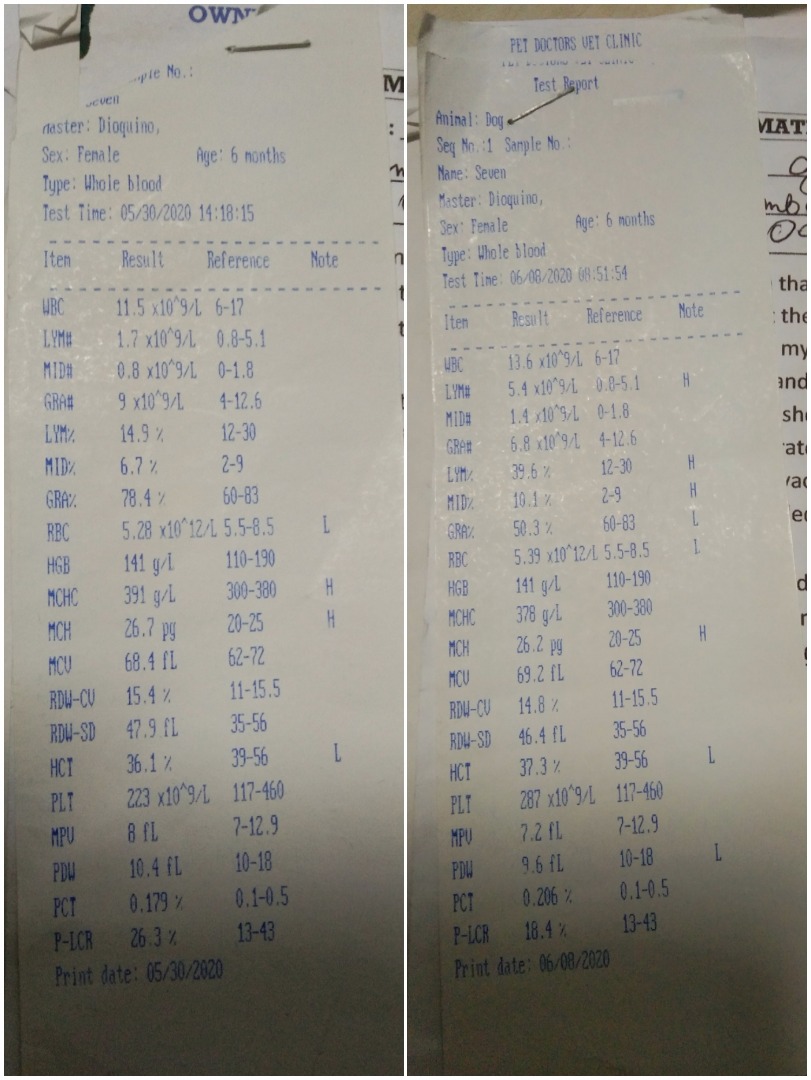 OWN
ple No.:
Seven
Master: Dioquino,
Sex: Female Age: 6 months
Type: Whole blood
Test Time: 05/30/2020 14:18:15
Item Result Reference Note
WBC 11.5 x10^9/L 6-17
LYM# 1.7 x10^9/L 0.8-5.1
MID# 0.8 x10^9/L 0-1.8
GRA# 9 x10^9/L 4-12.6
LYM% 14.9 % 12-30
MID% 6.7 % 2-9
GRA% 78.4 % 60-83
RBC 5.28 x10^12/L 5.5-8.5 L
HGB 141 g/L 110-190
MCHC 391 g/L 300-380 H
MCH 26.7 pg 20-25 H
MCV 68.4 fL 62-72
RDW-CV 15.4 % 11-15.5
RDW-SD 47.9 fL 35-56
HCT 36.1 % 39-56 L
PLT 223 x10^9/L 117-460
MPV 8 fL 7-12.9
PDW 10.4 fL 10-18
PCT 0.179 % 0.1-0.5
P-LCR 26.3 % 13-43
Print date: 05/30/2020
PET DOCTORS VET CLINIC
Test Report
Animal: Dog
Seq No.:1 Sample No.:
Name: Seven
Master: Dioquino,
Sex: Female Age: 6 months
Type: Whole blood
Test Time: 06/08/2020 08:51:54
Item Result Reference Note
WBC 13.6 x10^9/L 6-17
LYM# 5.4 x10^9/L 0.8-5.1 H
MID# 1.4 x10^9/L 0-1.8
GRA# 6.8 x10^9/L 4-12.6
LYM% 39.6 % 12-30 H
MID% 10.1 % 2-9 H
GRA% 50.3 % 60-83 L
RBC 5.39 x10^12/L 5.5-8.5 L
HGB 141 g/L 110-190
MCHC 378 g/L 300-380
MCH 26.2 pg 20-25 H
MCV 69.2 fL 62-72
RDW-CV 14.8 % 11-15.5
RDW-SD 46.4 fL 35-56
HCT 37.3 % 39-56 L
PLT 287 x10^9/L 117-460
MPV 7.2 fL 7-12.9
PDW 9.6 fL 10-18 L
PCT 0.206 % 0.1-0.5
P-LCR 18.4 % 13-43
Print date: 06/08/2020
MAT
tha
the
my
and